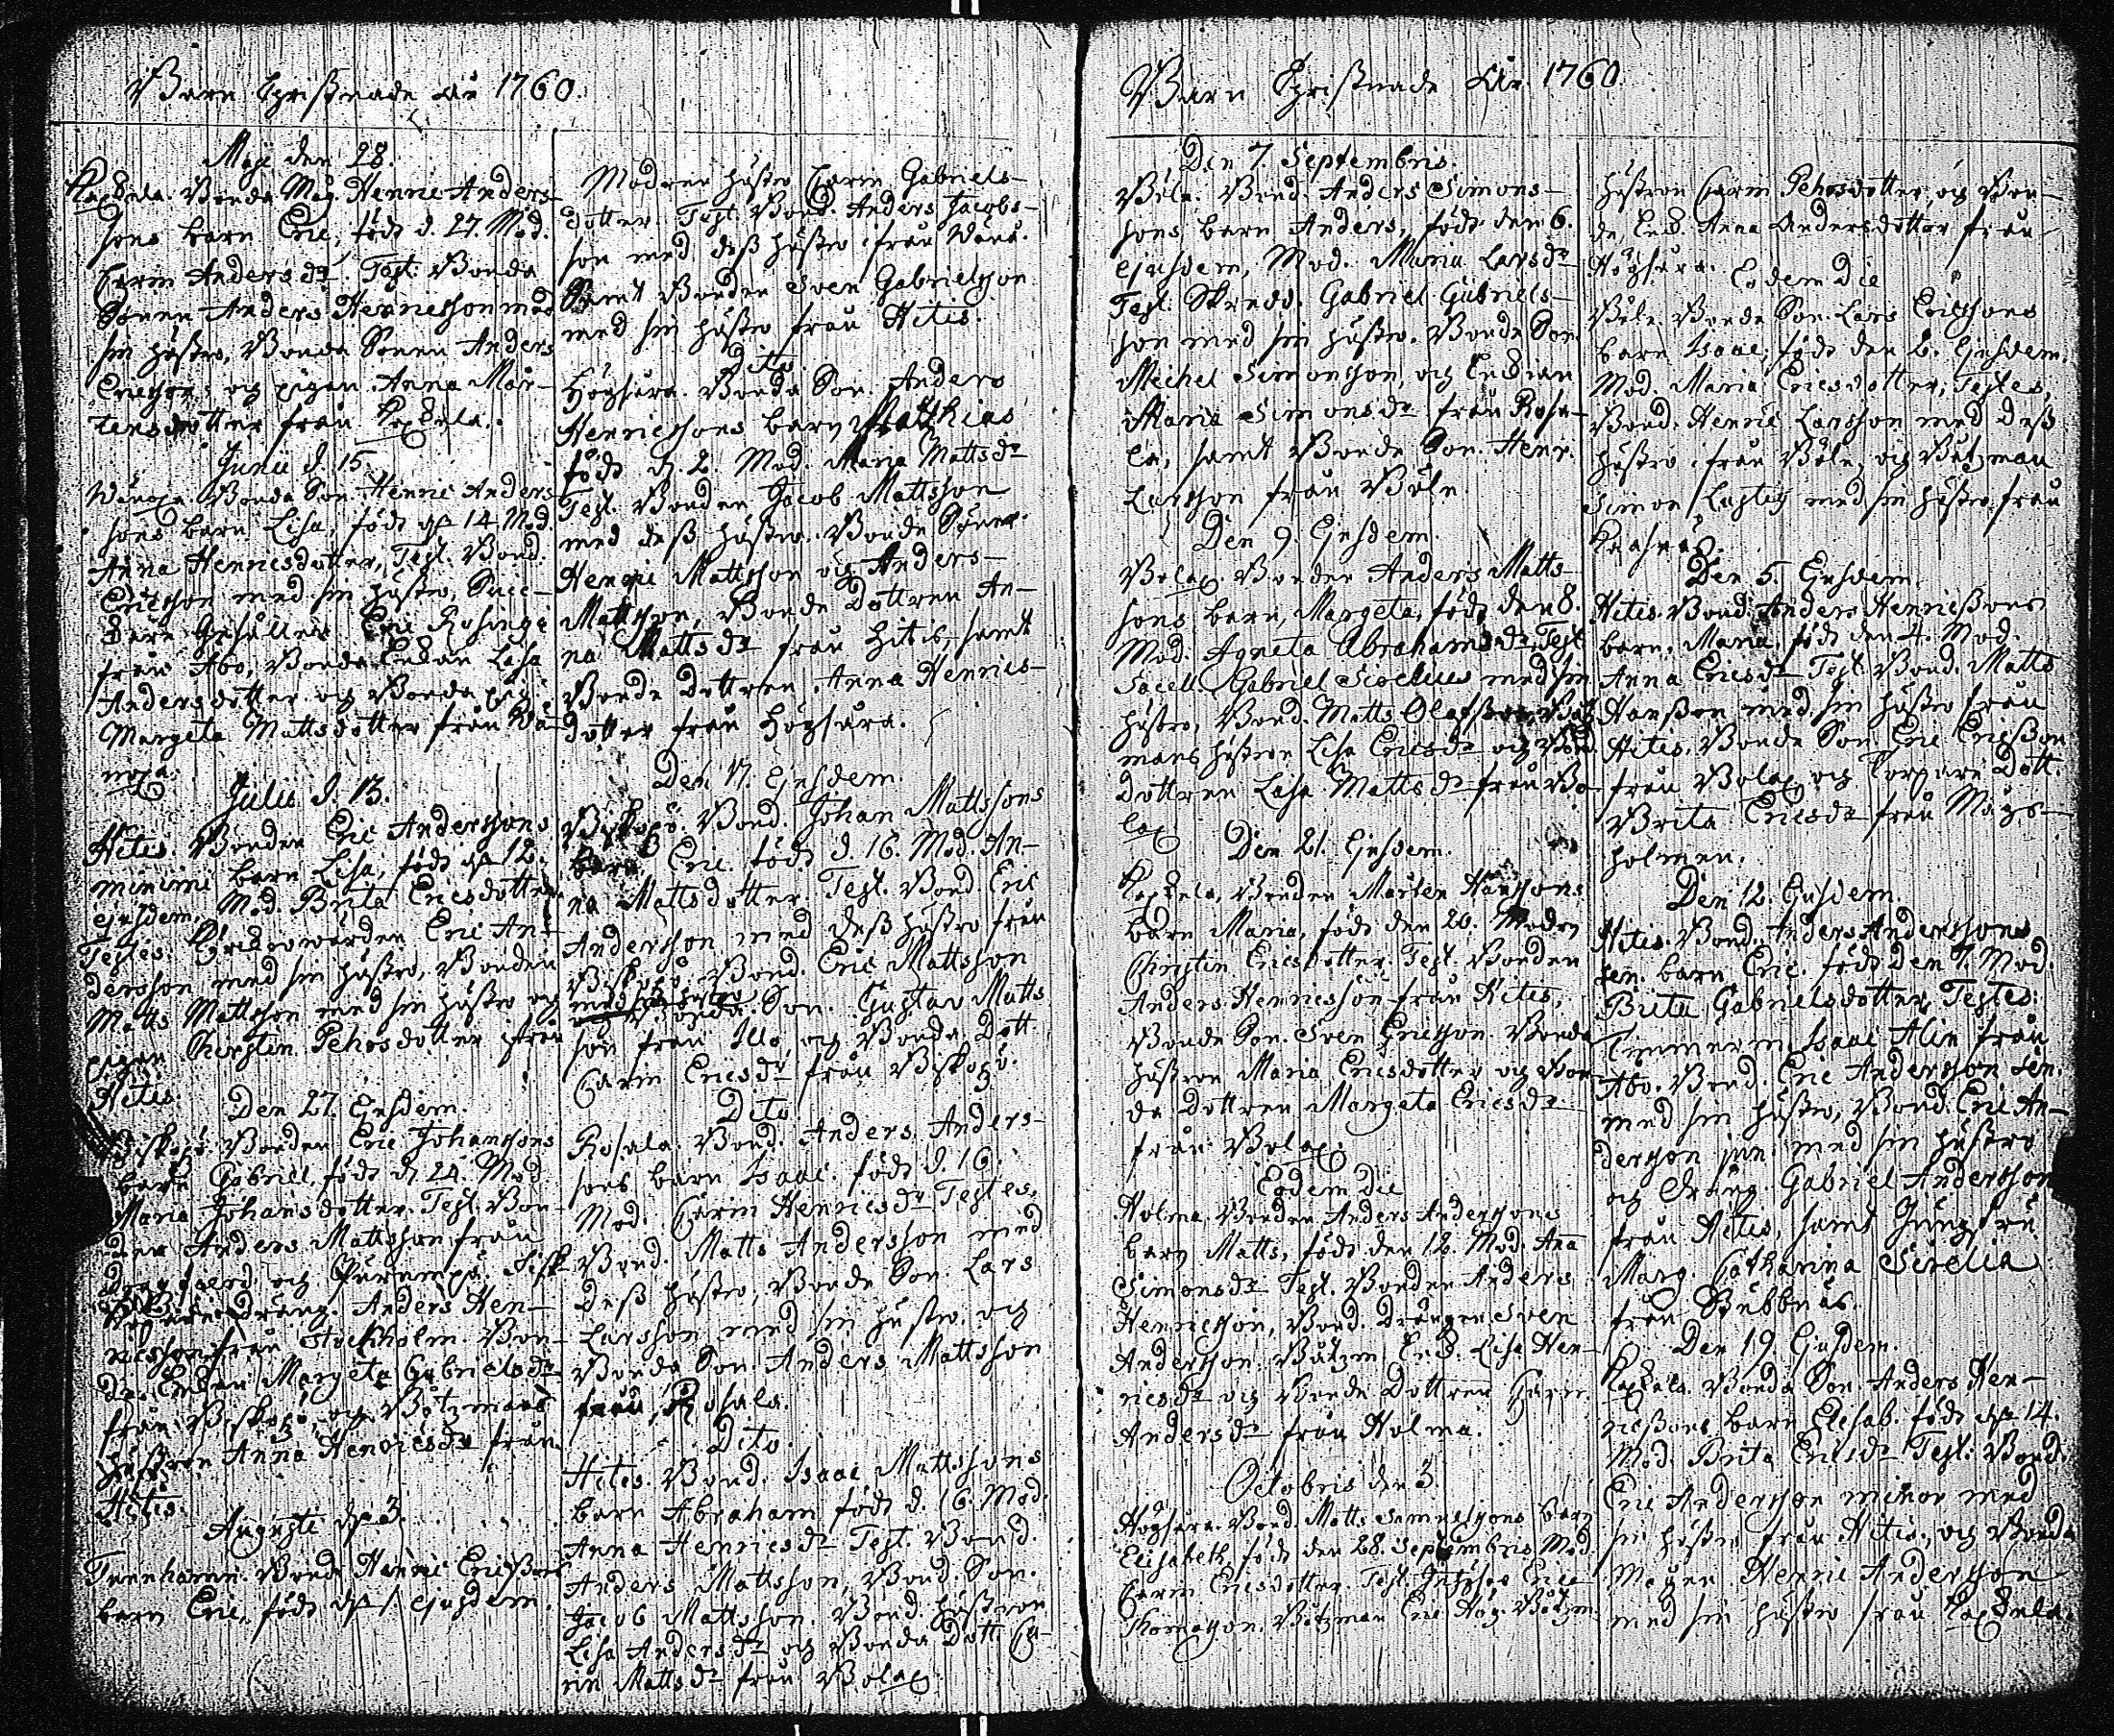 Barn Christnade År 1760.
Maji den 28.
Kaxskela. Bonda Måg Henric Anders-
sons barn Eric, född d. 27. Mod.
Carin Andersdr. Test. Bonda
Sonen Anders Henricsson med
sin hustro, Bonda Sonen Anders
Ericsson och pigan Anna Mår-
tensdotter från Kaxskela.
Junii d. 15.
Wänoxa. Bonda Son. Henric Anders-
sons barn Lisa, född d. 14 Mod.
Anna Henricsdotter, Test. Bond.
Ericsson med sin hustro,
Gesällen Eric Rosinge
från Åbo, Bonda Enkan Lisa
Andersdotter och Bonda pig.
Margeta Mattsdotter från Wä-
noxa.
Julii d. 13.
Hitis. Bonden Eric Anderssons
minimi barn Lisa, född d. 12.
ejusdem, Mod. Brita Ericsdotter
Testes: Eric An-
dersson med sin hustro, Bonden
Matts Mattsson med sin hustro och
pigan Christin Pehrsdotter ifrån
Hitis.
Den 27. Ejusdem.
Biskopsö. Bonden Eric Johanssons
barn Gabriel, född d. 24. Mod.
Maria Johansdotter. Test. Bon-
den Anders Mattsson från
Dragsfierd och
dräng. Anders Hen-
ricsson från Stockholm. Bon-
da Enkan Margeta Gabrielsdr
från Biskopsö, och Båtzmans
hustron Anna Henricsdr från
Hitis.
Augusti d. 3.
Tunnhamn. Bond. Henric Ericssons
barn Eric, född d. 1. ejusdem.
Modren hustro Carin Gabriels-
dotter. Test. Bond. Anders Jacobs-
son med dess hustro ifrån Wänö.
Samt Bonden Sven Gabrielsson
med sin hustro från Hitis.
Dito
Högsåra. Bonda Son. Anders
Henricssons barn Matthias
född d. 2. Mod. Maria Mattsdr
Test. Bonden Jacob Mattsson
med dess hustro. Bonde Söner.
Henric Mattsson och Anders
Mattsson, Bonde Dottren An-
na Mattsdr från Hitis, samt
Bonde Dottren Anna Henrics-
dotter från Högsåra.
Den 17. Ejusdem.
Biskopsö. Bond. Johan Mattssons
barn Eric. född d. 16. Mod. An-
na Mattsdotter. Test. Bond. Eric
Andersson med dess hustro från
Biskopsö. Bond. Eric Mattsson
med sin hustro Bonda Son. Gustav Matts
son från Illo och Bonda Dott.
Carin Ericsdr från Biskopsö.
Dito
Rosala. Bond. Anders Anders-
sons barn Isaac. född d. 16.
Mod. Carin Henricsdr Testes,
Bond. Matts Andersson med
dess hustro, Bonde Son. Lars
Larsson med sin hustro och
Bonda Son. Anders Mattsson
från Rosala.
Dito.
Hitis. Bond. Isaac Mattssons
barn Abraham född d. 16. Mod.
Anna Henricsdr Test. Bond.
Anders Mattsson, Bond. Son.
Jacob Mattsson. Bond. hustron
Lisa Andersdr och Bonda Dott. Ca-
rin Mattsdr från Bolax
Barn Christnade År 1760.
Den 7. Septembris.
Böle. Bond. Anders Simons-
sons barn Anders, född den 6.
ejusdem, Mod. Maria Larsdr
Test. Skredd. Gabriel Gabriels-
son med sin hustro. Bonde Son
Michel Simonsson, och Enkian
Maria Simonsdr från Rosa-
la, samt Bonde Son. Henr.
Larsson från Böle.
Den 9. Ejusdem.
Bolax. Bonden Anders Matts-
sons barn, Margeta, född den 8.
Mod. Agneta Abrahamsdr. Test.
Sacell. Gabriel Sirelius med sin
hustro, Bond. Matts Olofsson, Båtz
mans hustron Lisa Ericsdr och Bond.
dottren Lisa Mattsdr från Bo-
lax
Den 21. Ejusdem.
Kaxkela, Bonden Mårten Hanssons
barn Maria, född den 20. Modren
Christin Ericsdotter. Test. Bonden
Anders Henricsson från Hitis,
Bonde Son. Sven Ericsson. Bonda
hustron Maria Ericsdotter och Bon-
da Dottren Margeta Ericsdr
från Bolax.
Eodem Die
Holma. Bonden Anders Anderssons
barn Matts, född den 12. Mod. Ana
Simonsdr Test. Bonden Anders
Henricsson, Bond. Drängen Sven
Andersson. Båtzm. Enk. Lisa Hen-
ricsdr och Bonde Dottren Carin
Andersdr från Holma.
Octobris den 3.
Högsåra. Bond. Matts Samuelssons barn
Elisabeth, född den 28. Septembris Mod.
Carin Ericsdotter. Test. Eric
Thomasson. Båtzman Eric Hög. Båtzm.
hustron Carin Pehrsdotter, och Bon-
de, Enk. Anna Andersdotter från
Högsåra.
Eodem Die
Böle. Bonde Son. Lars Ericssons
barn Isaac, född den 2. Ejusdem.
Mod. Maria Ericsdotter, Testes,
Bond. Henric Larsson med dess
hustro ifrån Böle, och Båtzman
Simon Lustig med sin hustro från
Den 5. Ejusdem.
Hitis. Bond. Anders Henricssons
barn, Maria, född den 4. Mod.
Anna Ericsdr Test. Bond. Matts
Hansson med sin hustro från
Hitis. Bonde Son Eric Ericsson
från Bolax och Torpare Dott.
Brita Ericsdr från Mågs-
holmen.
Den 12. Ejusdem.
Hitis. Bond. Anders Anderssons
sen. barn Eric. född den 7. Mod.
Brita Gabrielsdotter, Testes:
Timmerm. Isaac Alin från
Åbo. Bond. Eric Andersson sen.
med sin hustro, Bond. Eric An-
dersson jun. med sin hustro
och dräng. Gabriel Andersson
från Hitis, samt Jungfru
Marg. Catharina Sirelia
från Stubbnäs.
Den 19. Ejusdem.
Kaxkela. Bonda Son. Anders Hen-
ricssons barn Elisab. född d. 14.
Mod. Brita Ericsdr Test. Bond.
Eric Andersson minor med
sin hustro från Hitis, och Bonda
Mågen Henric Andersson
med sin hustro från Kaxkela.